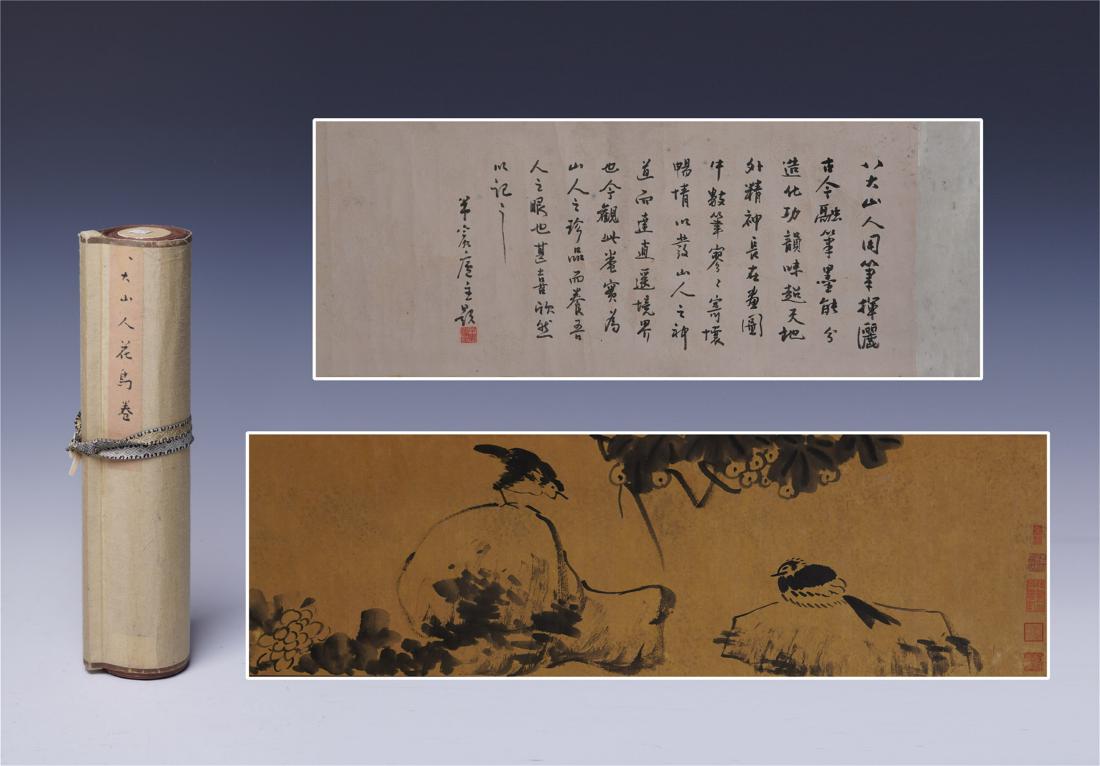 八大山人花鳥卷
八大山人用筆揮灑
古今融筆墨能分
造化功韻味超天地
外精神長在畫圖
中數筆寥〻寄懷
暢情以發山人之神
道而達直遥境界
也今觀此卷實為
山人之珍品而養吾
人之眼也甚喜欣然
以記之
主題